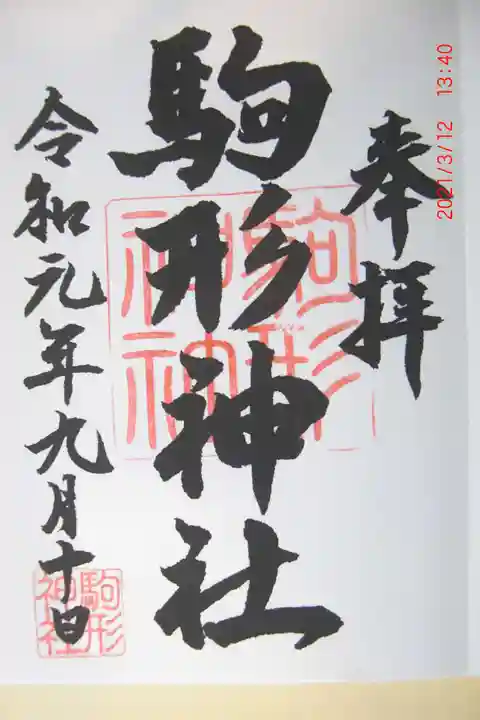 奉拝
駒形神社
令和元年九月十日
駒形神社
駒形神社
2021/3/12 13:40